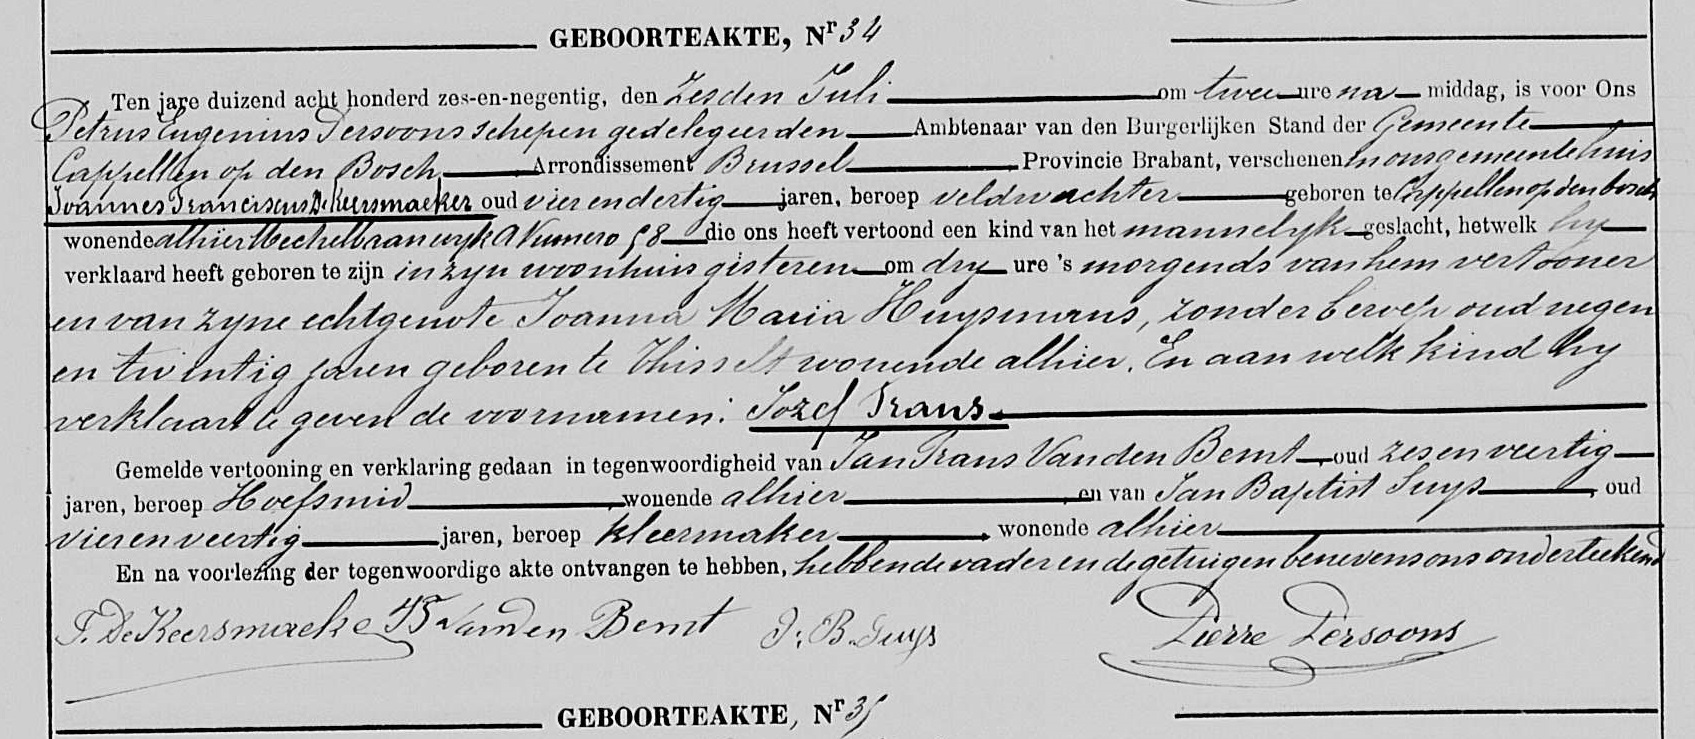 GEBOORTEAKTE, Nr 34
Ten jare duizend acht honderd zes-en-negentig, den Zesden Juli om twee ure na middag, is voor Ons
Petrus Eugenius Persoons schepen gedelegeerden Ambtenaar van den Burgerlijken Stand der Gemeente
Cappellen op den Bosch Arrondissement Brussel Provincie Brabant, verschenen in ons gemeentehuis
Joannes Franciscus De Keersmaeker oud vier en dertig jaren, beroep veldwachter geboren te Cappellen op den bosch
wonende alhier Mechelbaan wyk A Numero 58 die ons heeft vertoond een kind van het mannelyk geslacht, hetwelk hy
verklaard heeft geboren te zijn in zyn woonhuis gisteren om dry ure 's morgends van hem vertooner
en van zyne echtgenote Joanna Maria Huysmans, zonder beroep oud negen
en twintig jaren geboren te Thisselt wonende alhier. En aan welk kind hy
verklaart te geven de voornamen: Jozef Frans
Gemelde vertooning en verklaring gedaan in tegenwoordigheid van Jan Frans Vanden Bemt, oud zes en veertig
jaren, beroep Hoefsmid, wonende alhier, en van Jan Baptist Suys, oud
vier en veertig jaren, beroep kleermaker, wonende alhier
En na voorlezing der tegenwoordige akte ontvangen te hebben, hebben de vader en de getuigen benevens ons onderteekend
F. De Keersmaeke Vanden Bemt J. B. Suys Pierre Persoons
GEBOORTEAKTE, Nr 35